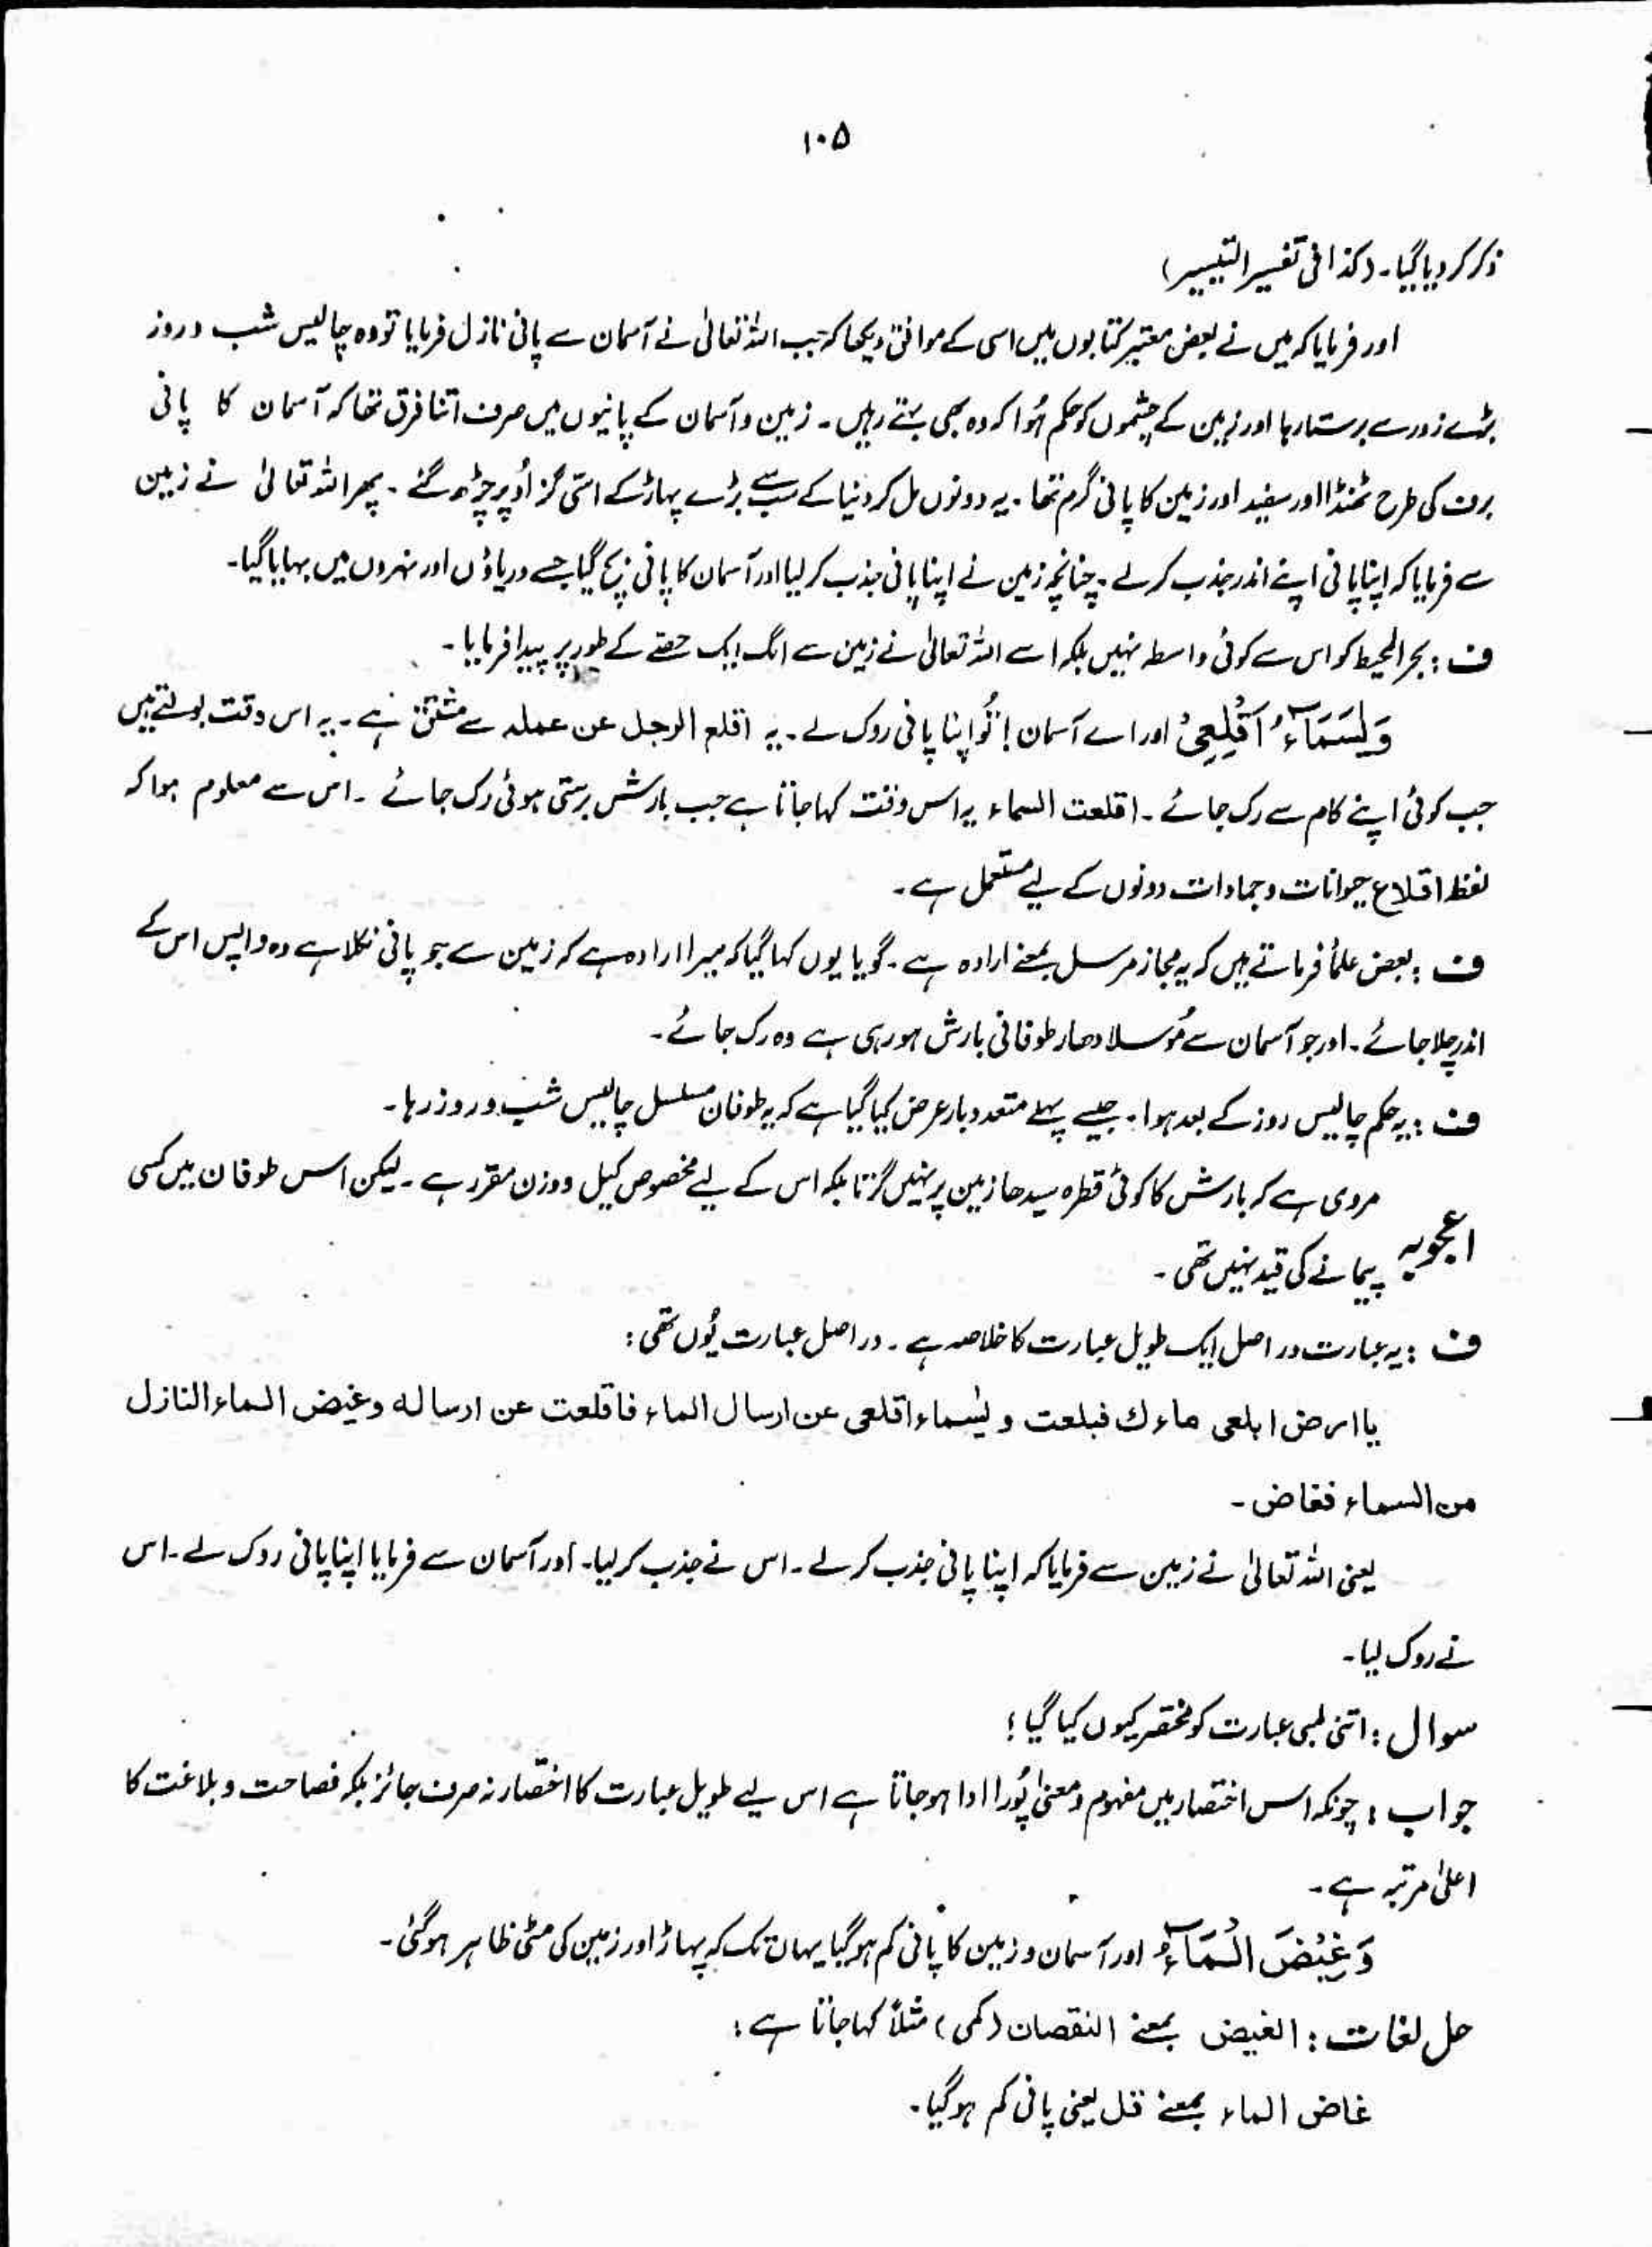 ۱۰۵
ذکر کر دیا گیا۔ (کذا فی تفسیر التیسیر)
اور فرمایا کہ میں نے بعض معتبر کتابوں میں اسی کے موافق دیکھا کہ جب اللہ تعالیٰ نے آسمان سے پانی نازل فرمایا تو وہ چالیس شب و روز
بڑے زور سے برستا رہا اور زمین کے چشموں کو حکم ہُوا کہ وہ بھی بہتے رہیں۔ زمین و آسمان کے پانیوں میں صرف اتنا فرق تھا کہ آسمان کا پانی
برف کی طرح ٹھنڈا اور سفید اور زمین کا پانی گرم تھا۔ یہ دونوں مل کر دنیا کے سب سے بڑے پہاڑ کے اسّی گز اُوپر چڑھ گئے۔ پھر اللہ تعالیٰ نے زمین
سے فرمایا کہ اپنا پانی اپنے اندر جذب کر لے۔ چنانچہ زمین نے اپنا پانی جذب کر لیا اور آسمان کا پانی بچ گیا جسے دریاؤں اور نہروں میں بہایا گیا۔
ف : بحر المحیط کو اس سے کوئی واسطہ نہیں بلکہ اسے اللہ تعالیٰ نے زمین سے الگ ایک حصّے کے طور پر پیدا فرمایا۔
وَیٰسَمَآءُ اَقْلِعِیْ اور اے آسمان! تُو اپنا پانی روک لے۔ یہ اقلع الرجل عن عملہ سے مشتق ہے۔ یہ اس وقت بولتے ہیں
جب کوئی اپنے کام سے رک جائے۔ اقلعت السماء یہ اس وقت کہا جاتا ہے جب بارش برستی ہوئی رک جائے۔ اس سے معلوم ہوا کہ
لفظ اقلاع حیوانات و جمادات دونوں کے لیے مستعمل ہے۔
ف : بعض علماُ فرماتے ہیں کہ یہ مجاز مرسل بمعنے ارادہ ہے۔ گویا یوں کہا گیا کہ میرا ارادہ ہے کہ زمین سے جو پانی نکلا ہے وہ واپس اس کے
اندر چلا جائے۔ اور جو آسمان سے مُوسلا دھار طوفانی بارش ہو رہی ہے وہ رک جائے۔
ف : یہ حکم چالیس روز کے بعد ہوا۔ جیسے پہلے متعدد بار عرض کیا گیا ہے کہ یہ طوفان مسلسل چالیس شب و روز رہا۔
مروی ہے کہ بارش کا کوئی قطرہ سیدھا زمین پر نہیں گرتا بلکہ اس کے لیے مخصوص کیل و وزن مقرر ہے۔ لیکن اس طوفان میں کسی
اعجوبہ پیمانے کی قید نہیں تھی۔
ف : یہ عبارت در اصل ایک طویل عبارت کا خلاصہ ہے۔ در اصل عبارت یُوں تھی :
یا ارض ابلعی ماءك فبلعت و یٰسماء اقلعی عن ارسال الماء فاقلعت عن ارسالہ وغیض الماء النازل
من السماء فغاض۔
یعنی اللہ تعالیٰ نے زمین سے فرمایا کہ اپنا پانی جذب کر لے۔ اس نے جذب کر لیا۔ اور آسمان سے فرمایا اپنا پانی روک لے۔ اس
نے روک لیا۔
سوال : اتنی لمبی عبارت کو مختصر کیوں کیا گیا ؟
جواب : چونکہ اس اختصار میں مفہوم و معنیٰ پُورا ادا ہو جاتا ہے اس لیے طویل عبارت کا اختصار نہ صرف جائز بلکہ فصاحت و بلاغت کا
اعلیٰ مرتبہ ہے۔
وَغِیْضَ الْمَآءُ اور آسمان و زمین کا پانی کم ہو گیا یہاں تک کہ پہاڑ اور زمین کی مٹی ظاہر ہو گئی۔
حل لغات : الغیض بمعنے النقصان (کمی) مثلاً کہا جاتا ہے :
غاض الماء بمعنے قل یعنی پانی کم ہو گیا۔